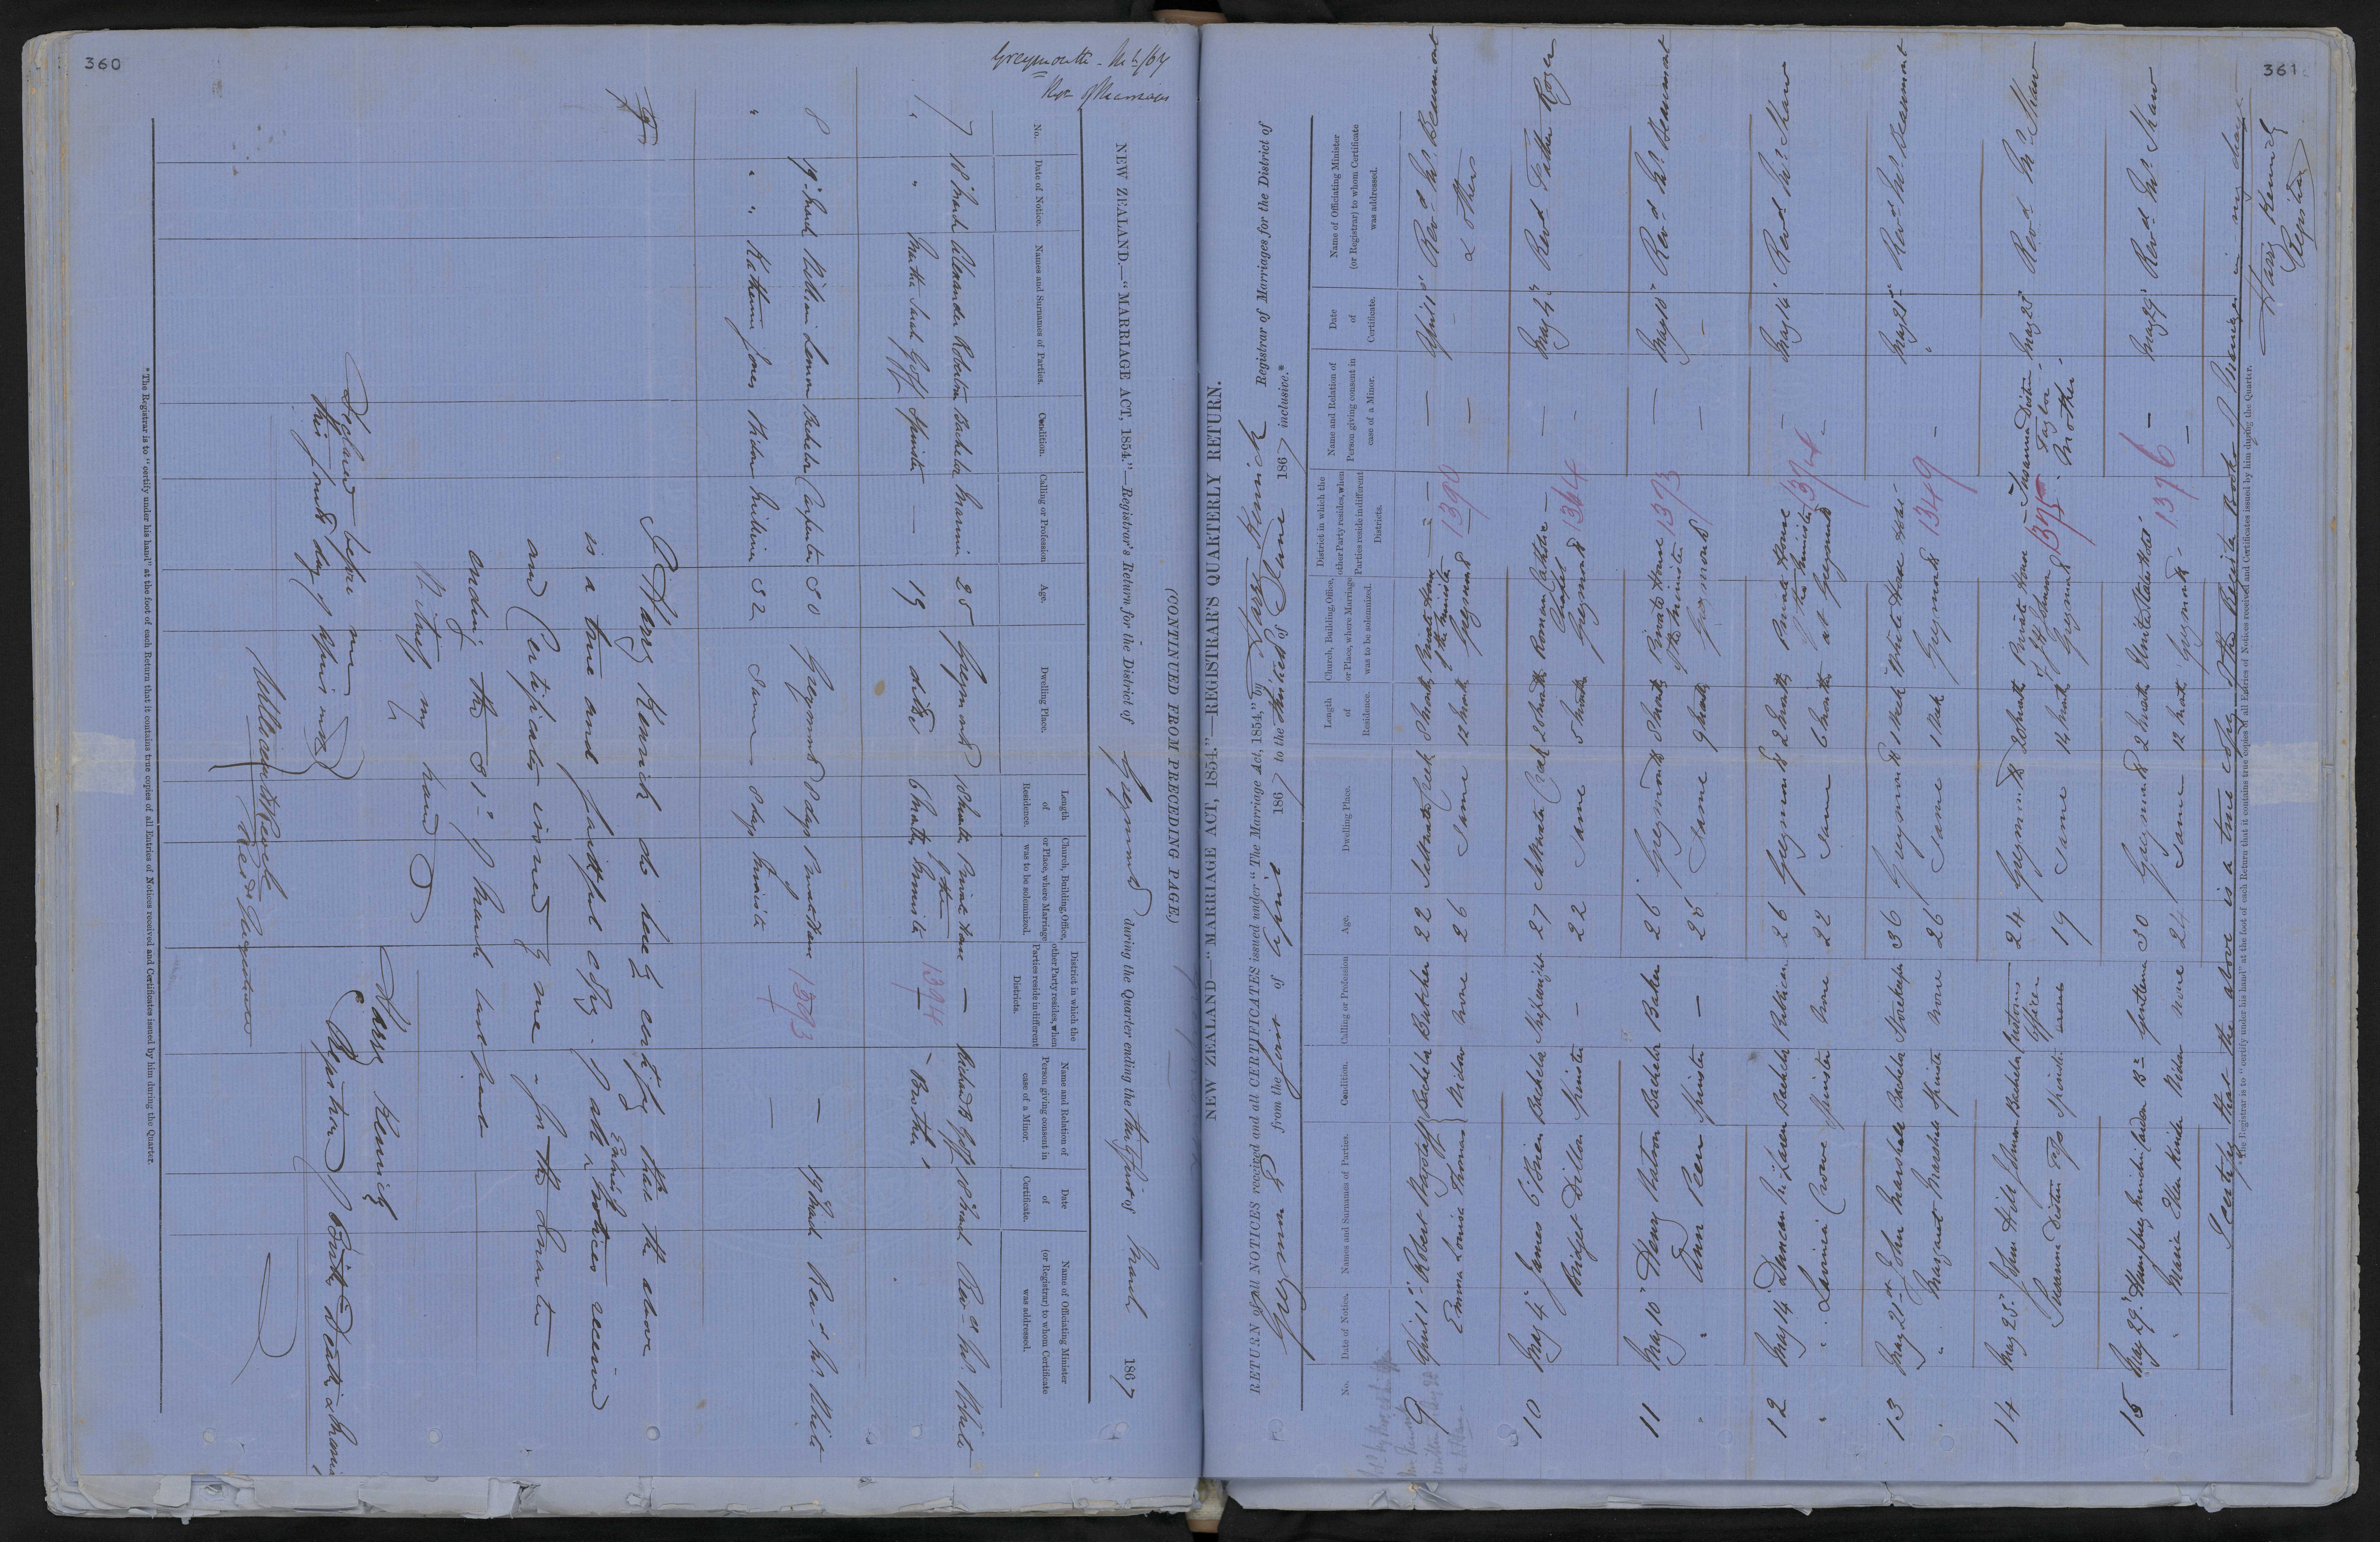 360
Greymouth
NEW ZEALAND.—"MARRIAGE ACT, 1854."—Registrar's Return for the District of Greymouth during the Quarter ending the Thirty first of March 1867
No.
Date of Notice.
Names and Surnames of Parties.
Condition.
Calling or Profession
Age.
Dwelling Place.
Length of Residence.
Church, Building, Office, or Place, where Marriage was to be solemnized.
District in which the other Party resides, when Parties reside in different Districts.
Name and Relation of Person giving consent in case of a Minor.
Date of Certificate.
Name of Officiating Minister (or Registrar) to whom Certificate was addressed.
7 18 March Alexander Robertson Bachelor 25 Greymouth Private House — Richard B Goff 18 March Revd Mr White
" " Martha Sarah Goff Spinster — 19 ditto 6 Months of the Minister 1394 - Brother
8 19 March William Lemon Bachelor Carpenter 30 Greymouth 8 days Private House 1393 — 19 March Revd Mr White
" " " Katherine Jones Widow Milliner 32 Same 8 days Minister —
I Harry Kenrick do hereby certify that the above
is a true and faithful copy of all Entries of Notices received
and Certificates issued by me for the Quarter
ending the 31st of March last past
Witness my hand
Harry Kenrick
Registrar of Births Deaths &
Declared before me
this fourth day of April 1867
* The Registrar is to "certify under his hand" at the foot of each Return that it contains true copies of all Entries of Notices received and Certificates issued by him during the Quarter.
361
(CONTINUED FROM PRECEDING PAGE.)
NEW ZEALAND—"MARRIAGE ACT, 1854."—REGISTRAR'S QUARTERLY RETURN.
RETURN of all NOTICES received and all CERTIFICATES issued under "The Marriage Act, 1854," by Harry Kenrick Registrar of Marriages for the District of
Greymouth from the first of April 1867 to the thirtieth of June 1867 inclusive.*
No.
Date of Notice.
Names and Surnames of Parties.
Condition.
Calling or Profession
Age.
Dwelling Place.
Length of Residence.
Church, Building, Office, or Place, where Marriage was to be solemnized.
District in which the other Party resides, when Parties reside in different Districts.
Name and Relation of Person giving consent in case of a Minor.
Date Of Certificate.
Name of Officiating Minister (or Registrar) to whom Certificate was addressed.
9 April 1st Robert Bachelor Butcher 22 Creek 8 Months Private House — — April 1st Revd Mr Beaumont
Emma Louisa Thomas Widow none 26 Same 12 Month of the Minister Greymouth 1390 — & others
10 May 4th James O'Brien Bachelor 27 Creek Roman Catholic — — May 4th Revd Father Royer
Bridget Dillon Spinster - 22 Same 5 Month Chapel Greymouth 1364 -
11 May 10th Henry Watson Bachelor Baker 26 Greymouth 8 Month Private House 1373 — May 10th Revd Mr Beaumont
" Ann Peen Spinster — 25 Same 9 Month of the Minister Greymouth — —
12 May 14 Duncan McLaren Bachelor Publican 26 Greymouth 2 Month Private House - May 14 Revd Mr Shaw
" " Lavinia Crowe Spinster none 22 Same 6 Month of the Minister at Greymouth 1374 -
13 May 21st John Marshall Bachelor Storekeeper 36 Greymouth 1 Week White Horse Hotel - May 21st Revd Mr Beaumont
" " Margaret Marshall Spinster none 26 Same 1 Week Greymouth 1349 -
14 May 25th John Hill Bachelor Customs Officer 24 Greymouth 20 Month Private House — Susanna Disten May 25th Revd Mr Shaw
Susanna Disten Spinster none 19 Same 14 Month Greymouth 1375 Taylor - Mother -
15 May 29th Humphrey Br Gentleman 30 Greymouth 2 Month United States Hotel — May 29th Revd Mr Shaw
" Maria Ellen Widow none 24 Same 12 Month Greymouth - 1376 —
I certify that the above is a true copy of the Register Book of Marriages in my charge
Harry Kenrick
Registrar
* The Registrar is to "certify under his hand" at the foot of each Return that it contains true copies of all Entries of Notices received and Certificates issued by him during the Quarter.